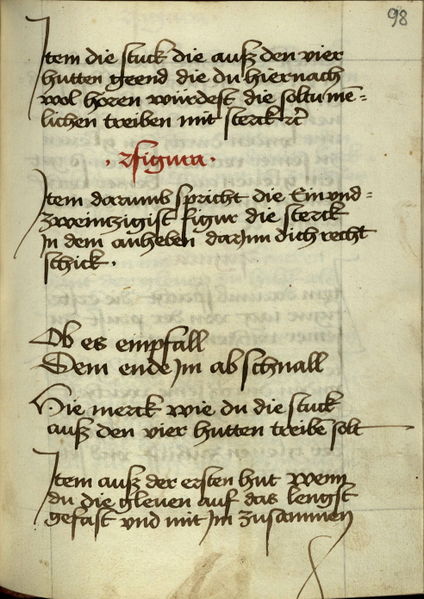 98
Item die stuck die auß den vier
hutten geend die du hiernach
wol horen würdest die soltu me=
lichen treiben mit sterck rc
· Figura ·
Item darumb spricht die Ein und=
zweintzigist figur die sterck
In dem anheben darInn dich recht
schick ·
Ob es empfall
Dem ende Im ab schnall
Hie merck wie du die stuck
auß den vier hutten treibe solt
Item auß der ersten hut wenn
du die gleuen auf das lengst
gefast und mit Im zusammen